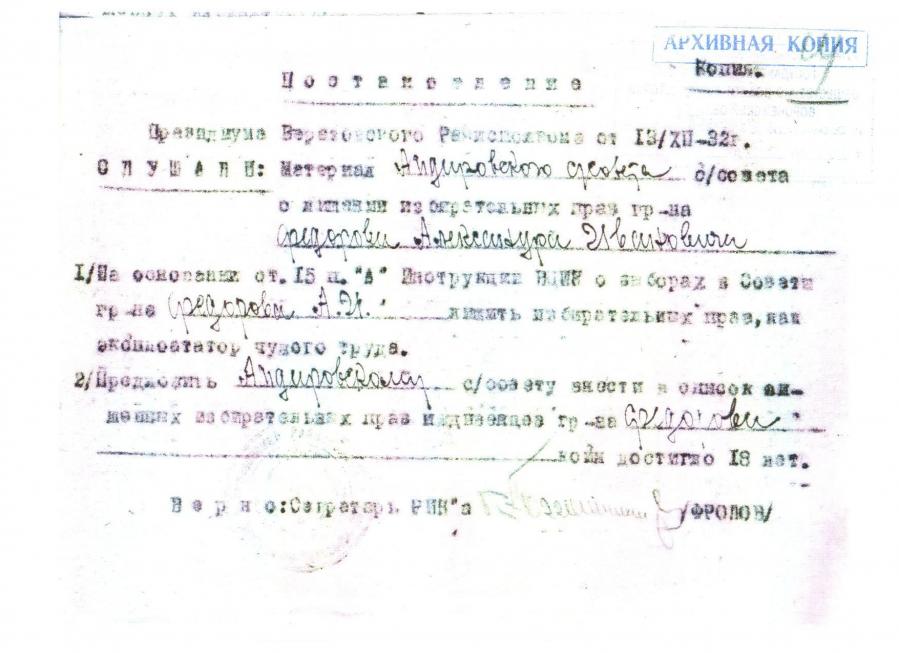 АРХИВНАЯ КОПИЯ
Копия.
Постановление
Президиума Березовского Райисполкома от 13/XII-32г.
СЛУШАЛИ: Материал Андировского с/совета
о лишении избирательных прав гр-на
Федорова Александра Ивановича
1/На основании от. 15 п. "А" Инструкции ВЦИК о выборах в Совети
гр-на Федорова А.И. лишить избирательных прав, как
эксплоататор чужого труда.
2/Предложить с/совету внести в список ли-
шенних избирательных прав иждивенцев гр-на Федорова
коим достигло 18 лет.
Верно: Секретарь РИК"а /ФРОЛОВ/